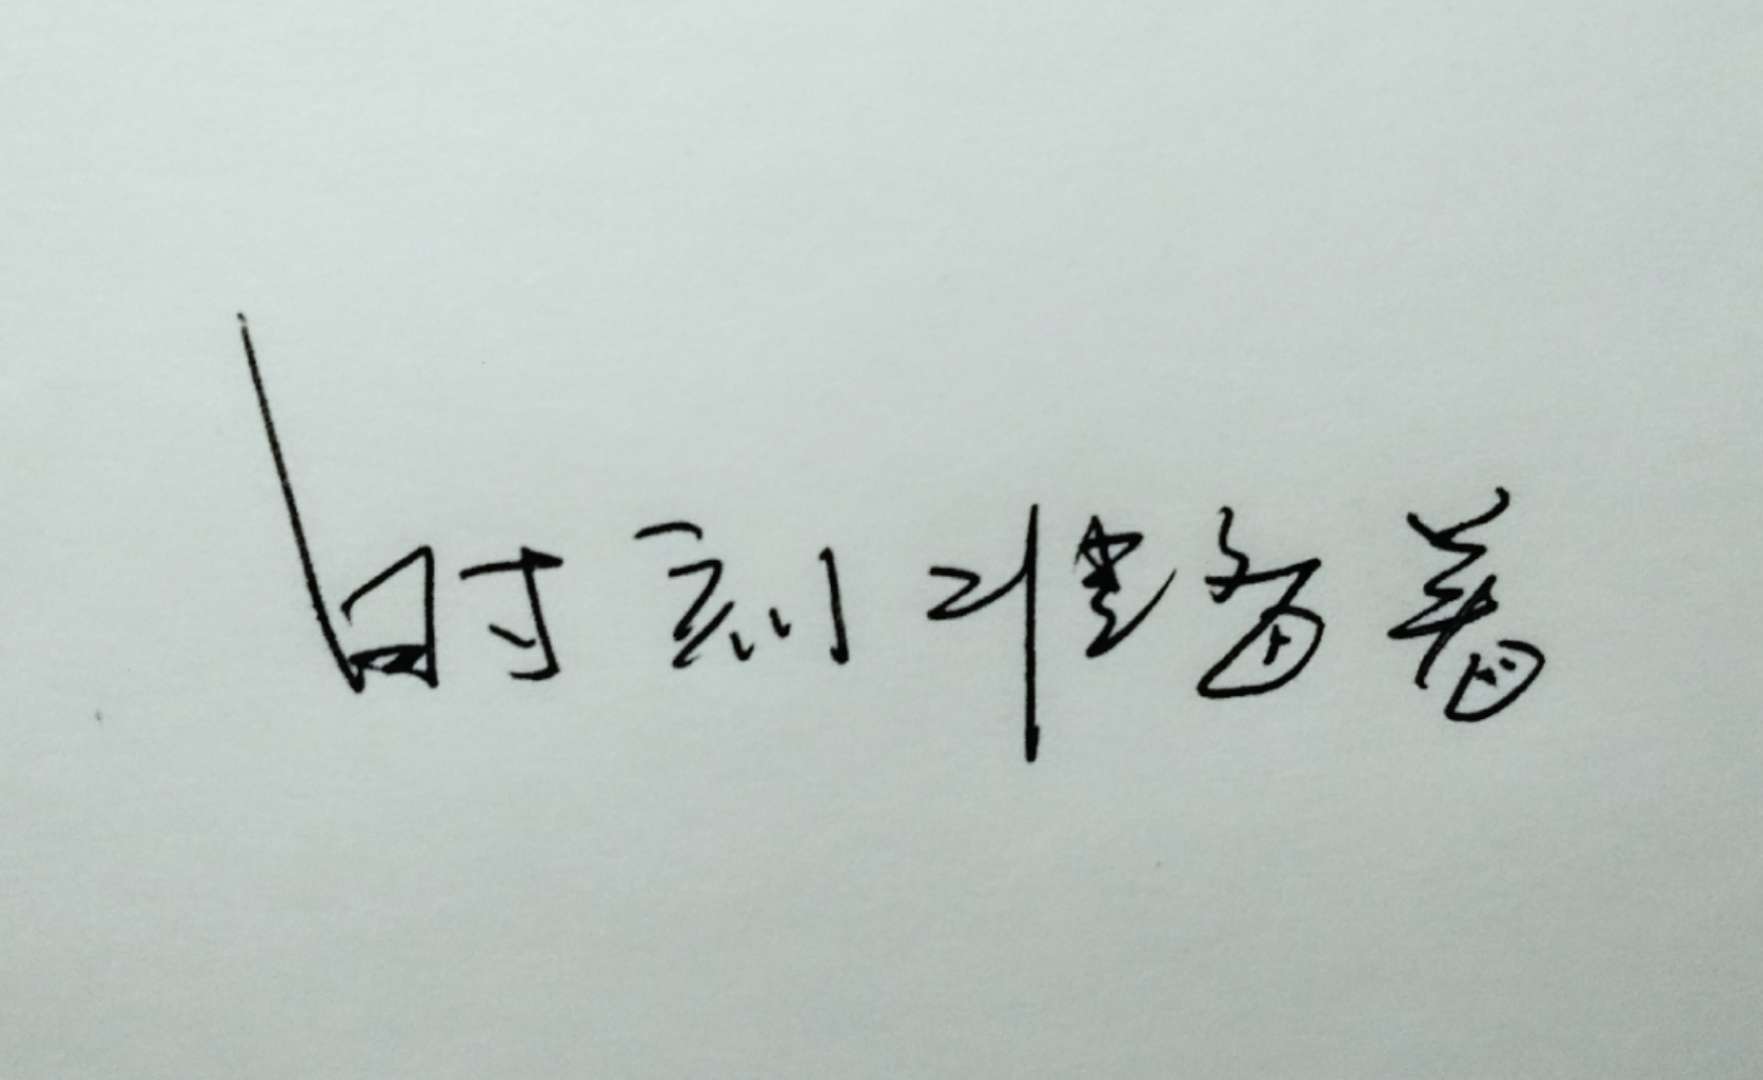 时刻准备着